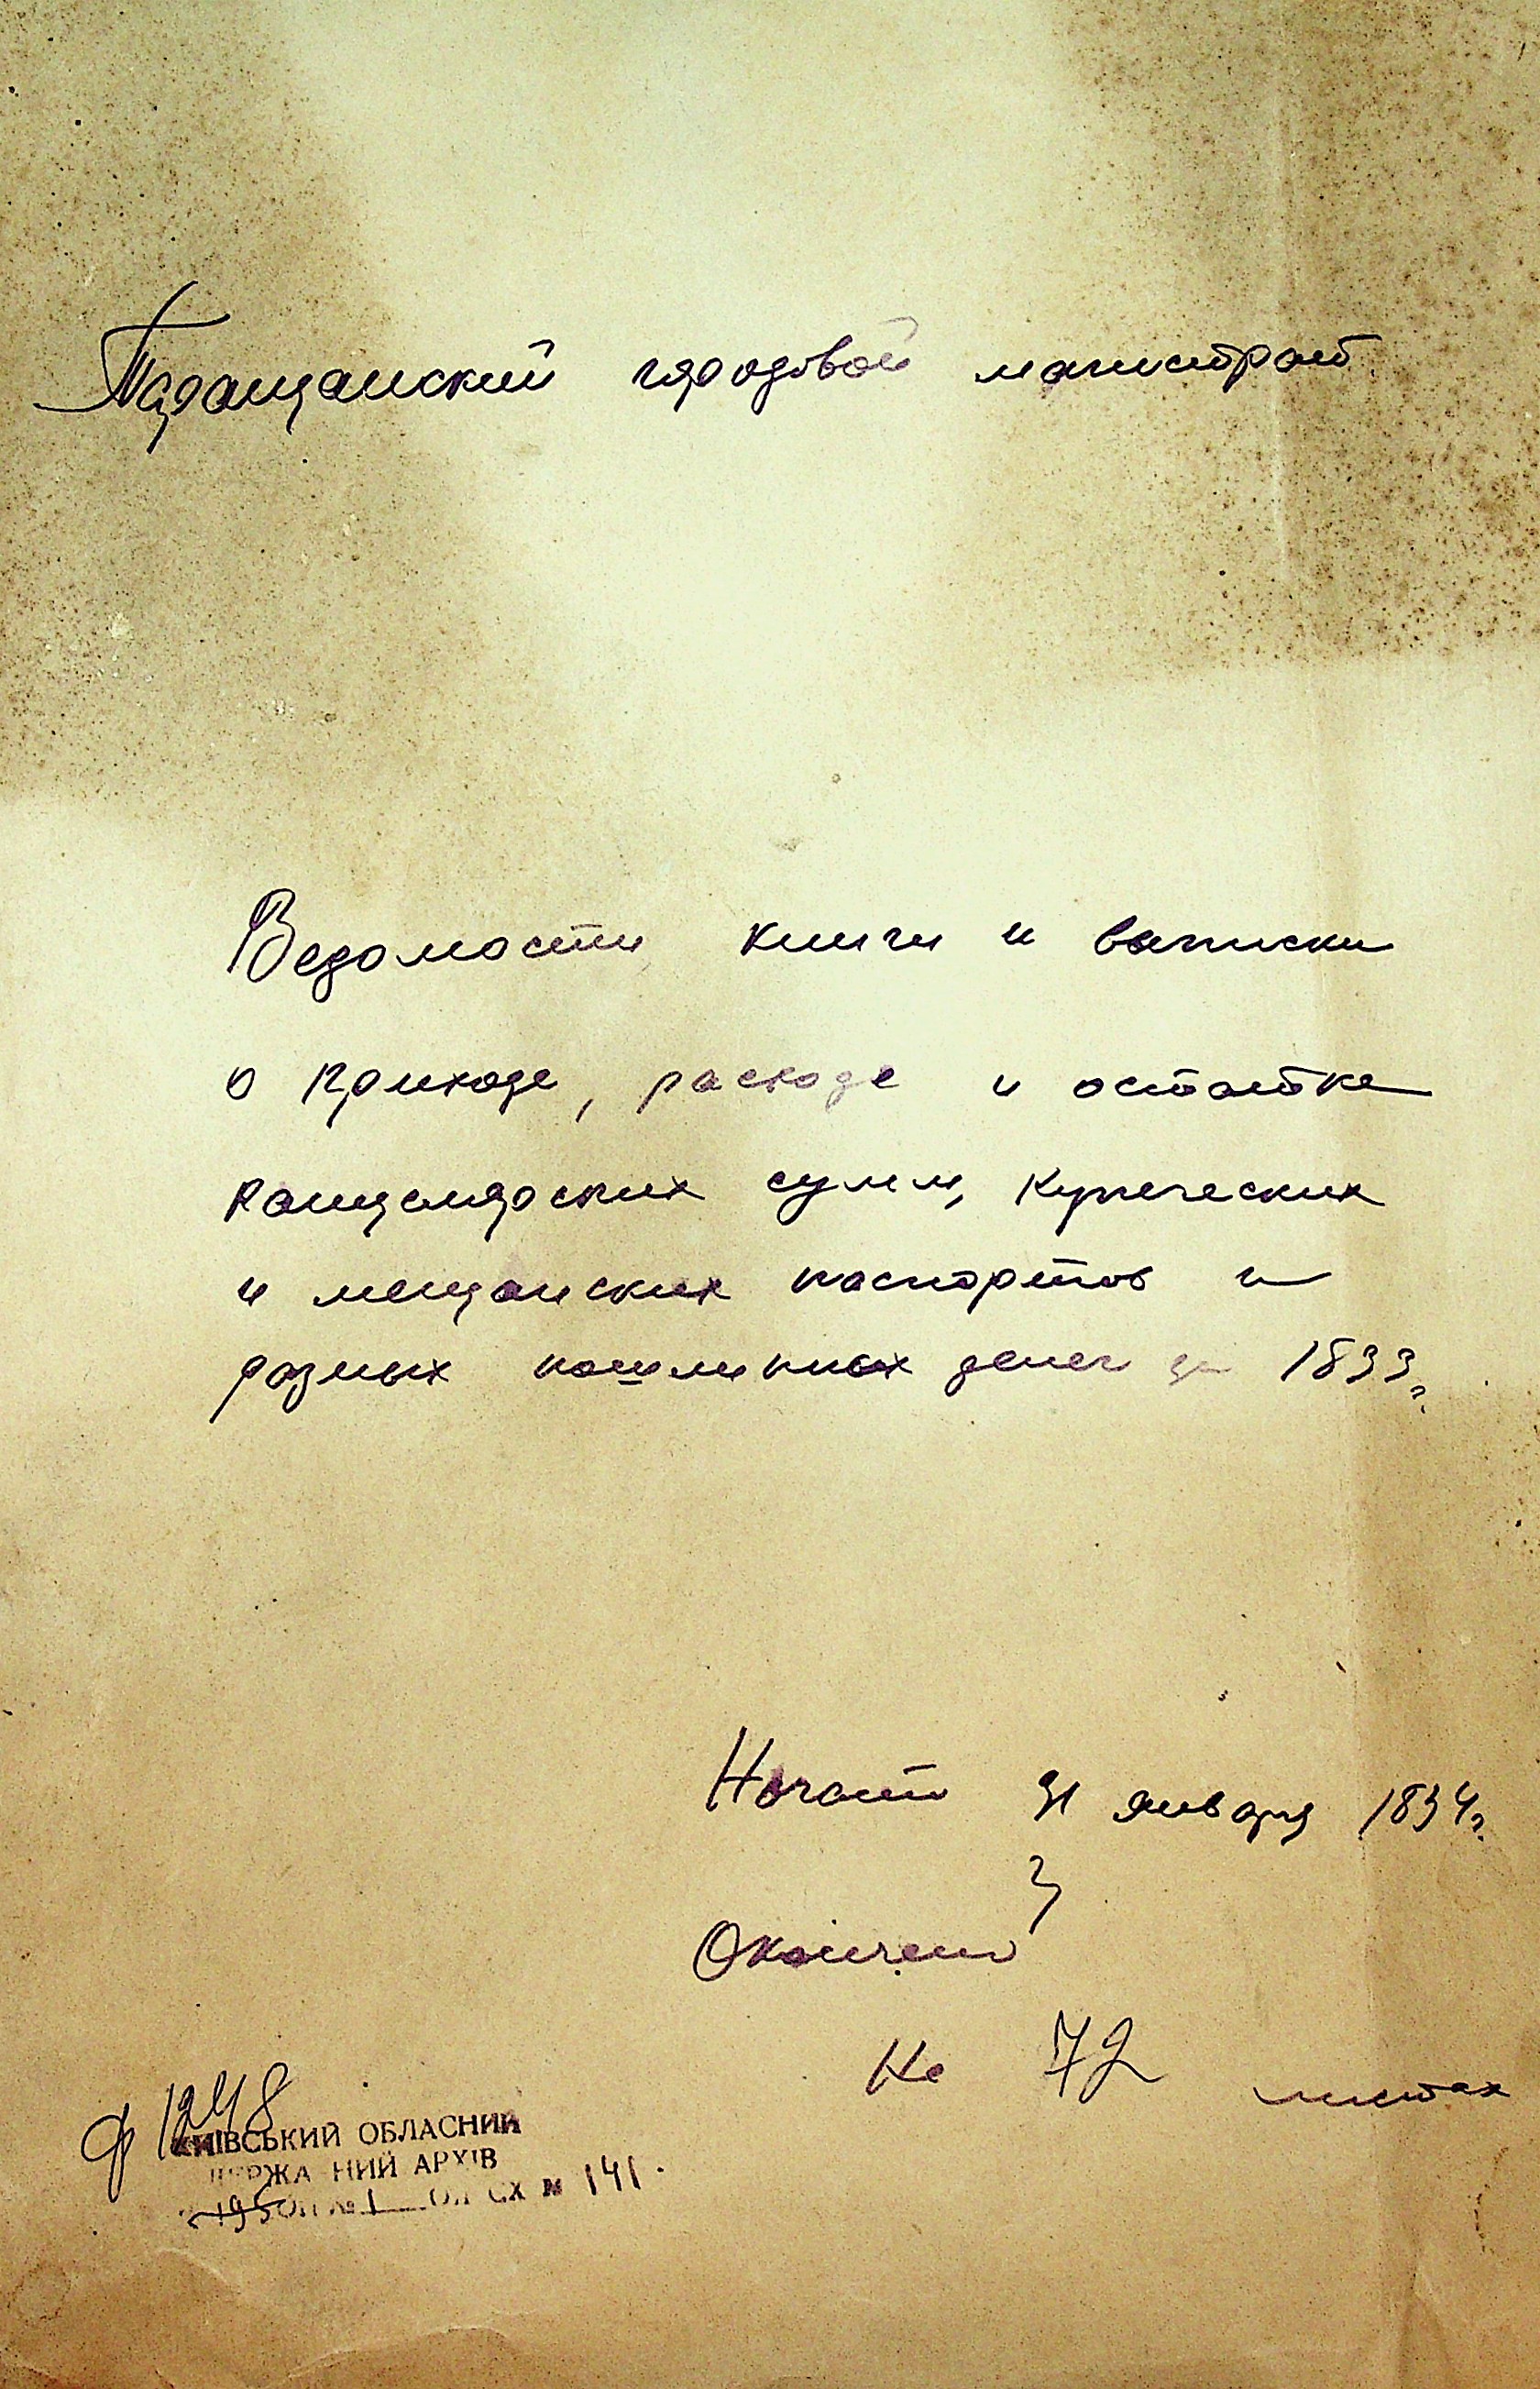 Таращанский городовой магистрат
Ведомости книги и выписки
о приходе, расходе и остатке
канцелярских сумм, купеческих
и мещанских паспортов и
разных пошлинных денег за 1833 г.
Начато 31 января 1834 г.
Окончено
На 72 листах
ф 1248
КИЇВСЬКИЙ ОБЛАСНИЙ
ДЕРЖА НИЙ АРХІВ
195 ОП № 1 ОД СХ № 141.